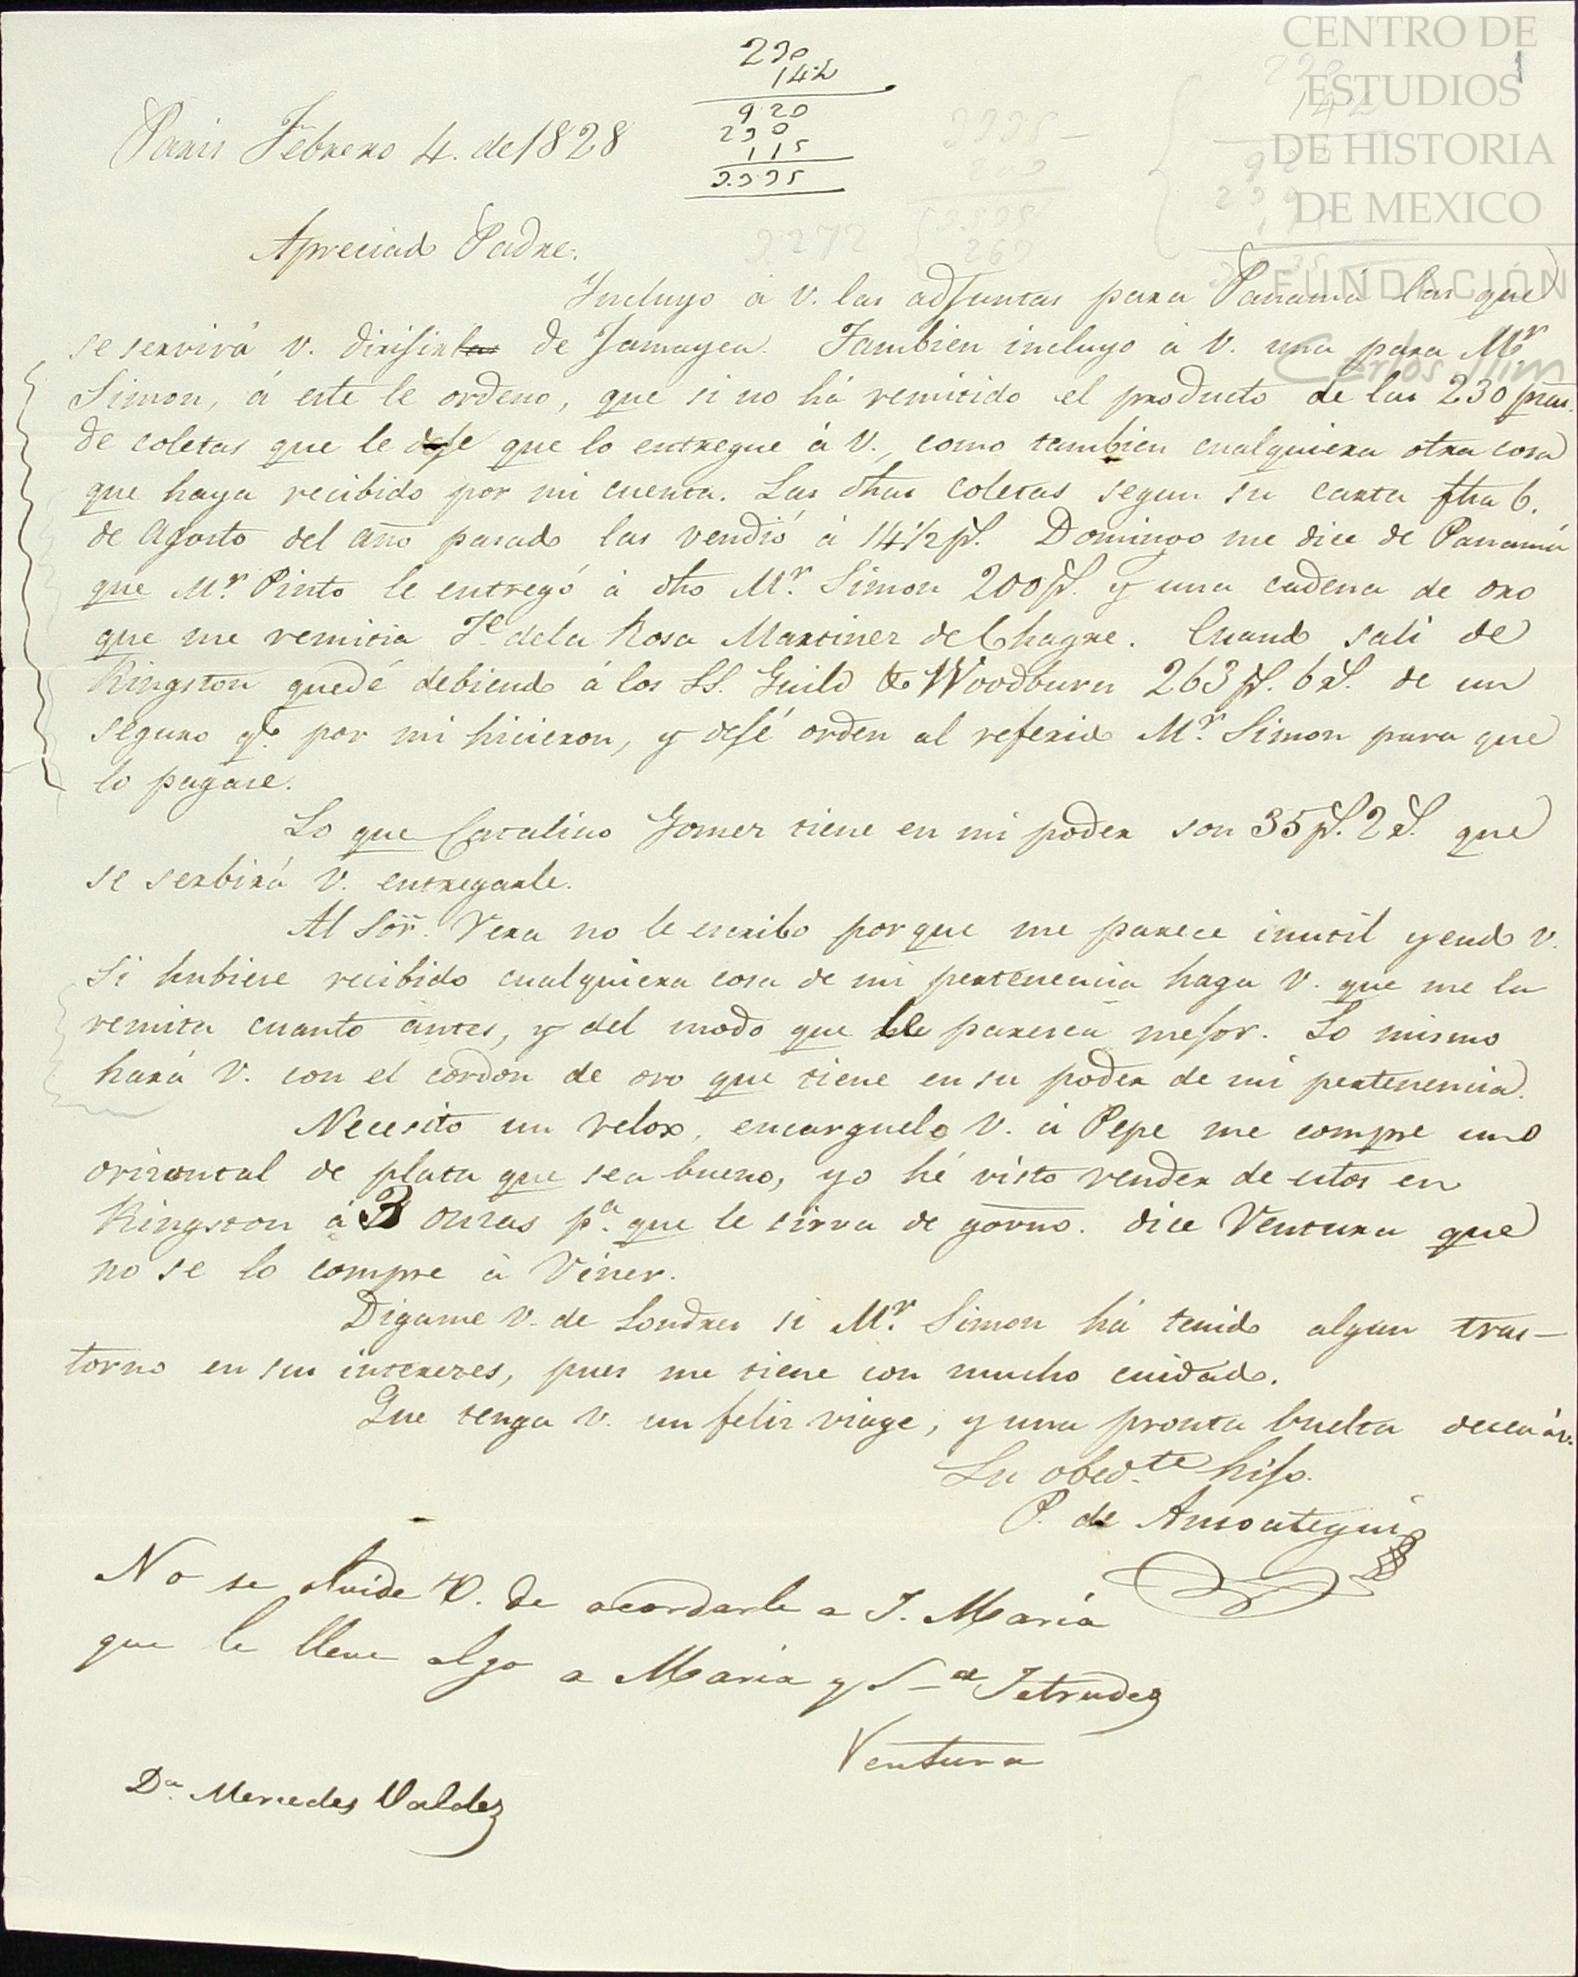 CENTRO DE
ESTUDIOS
DE HISTORIA
DE MEXICO
FUNDACIÓN
Carlos Slim
1
230
14½
920
230
115
3.335
Paris Febrero 4. de 1828
Apreciado Padre.
Incluyo á V. las adjuntas para Panamá las que
se servirá V. dirijirlas de Jamayca. Tambien incluyo á V. una para Mr
Simon, á este le ordeno, que si no há remitido el producto de las 230 pzas.
de coletas que le deje que lo entregue á V., como tambien cualquiera otra cosa
que haya recibido por mi cuenta. Las dhas coletas segun su carta fha 6.
de Agosto del año pasado las vendió á 14½ ps. Domingo me dice de Panamá
que Mr. Pinto le entregó á dho Mr. Simon 200 ps. y una cadena de oro
que me remitia Je. de la Rosa Martinez de Chagre. Cuando salí de
Kingston quedé debiendo á los SS. Guild & Woodburn 263 ps. 6 rs. de un
seguro qe. por mi hicieron, y dejé orden al referido Mr. Simon para que
lo pagase.
Lo que Catalino Gomez tiene en mi poder son 35 ps. 2 rs. que
se serbirá V. entregarle.
Al Sōr. Vera no le escribo porque me parece inutil yendo V.
Si hubiese recibido cualquiera cosa de mi pertenencia haga V. que me la
remita cuanto antes, y del modo que le paresca mejor. Lo mismo
hará V. con el cordon de oro que tiene en su poder de mi pertenencia.
Necesito un relox, encarguelo V. á Pepe me compre uno
orizontal de plata que sea bueno, yo hé visto vender de estos en
Kingston á 3 onzas pa. que le sirva de govno. dice Ventura que
no se lo compre á Viner.
Digame V. de Londres si Mr. Simon há tenido algun tras-
torno en sus interezes, pues me tiene con mucho cuidado.
Que tenga V. un feliz viage, y una pronta buelta decea á V.
Su obedte. hijo.
P. de Amoategui
No se olvide V. de acordarle a J. Maria
que le lleve algo a Maria y Jetrudez
Ventura
Da. Mercedes Valdez